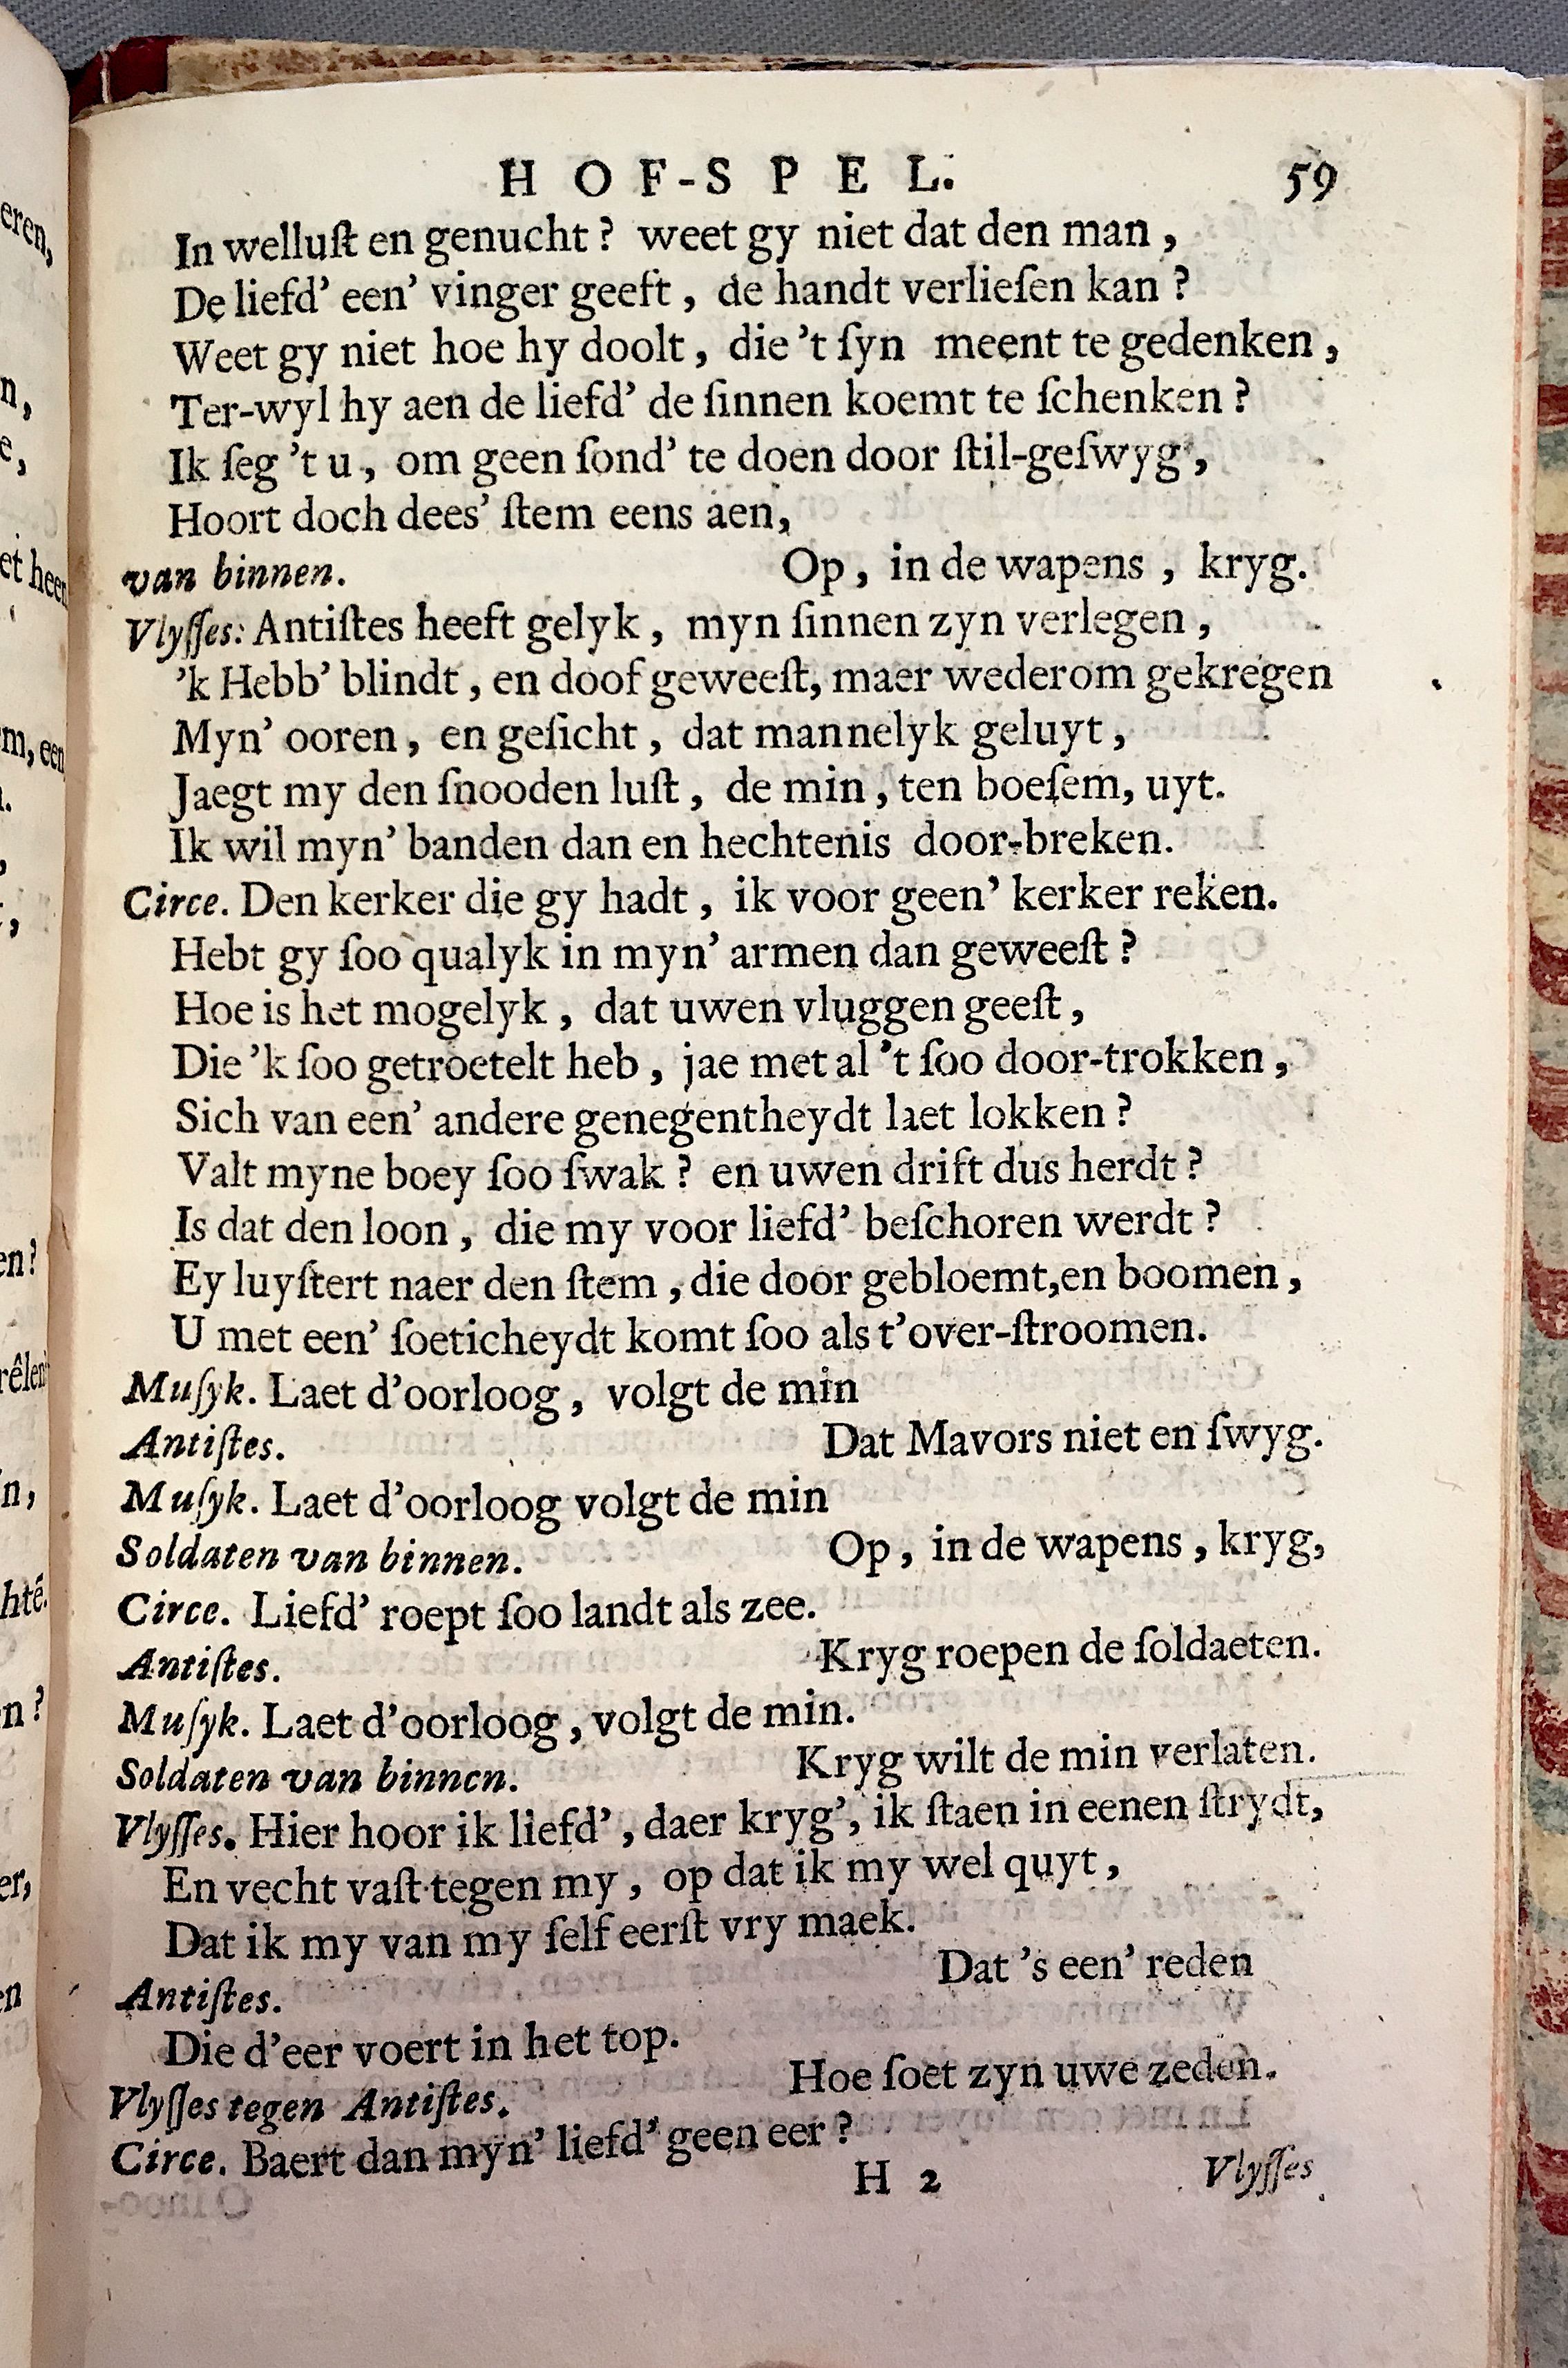 HOF-SPEL. 59
In welluſt en genucht? weet gy niet dat den man,
De liefd' een' vinger geeft, de handt verlieſen kan?
Weet gy niet hoe hy doolt, die 't ſyn meent te gedenken,
Ter-wyl hy aen de liefd' de ſinnen koemt te ſchenken?
Ik ſeg 't u, om geen ſond' te doen door ſtil-geſwyg',
Hoort doch dees' ſtem eens aen,
van binnen. Op, in de wapens, kryg.
Vlyſſes: Antiſtes heeft gelyk, myn ſinnen zyn verlegen,
'k Hebb' blindt, en doof geweeſt, maer wederom gekregen
Myn' ooren, en geſicht, dat mannelyk geluyt,
Jaegt my den ſnooden luſt, de min, ten boeſem, uyt.
Ik wil myn' banden dan en hechtenis door-breken.
Circe. Den kerker die gy hadt, ik voor geen' kerker reken.
Hebt gy ſoo qualyk in myn' armen dan geweeſt?
Hoe is het mogelyk, dat uwen vluggen geeſt,
Die 'k ſoo getroetelt heb, jae met al 't ſoo door-trokken,
Sich van een' andere genegentheydt laet lokken?
Valt myne boey ſoo ſwak? en uwen drift dus herdt?
Is dat den loon, die my voor liefd' beſchoren werdt?
Ey luyſtert naer den ſtem, die door gebloemt,en boomen,
U met een' ſoeticheydt komt ſoo als t'over-ſtroomen.
Muſyk. Laet d'oorloog, volgt de min
Antiſtes. Dat Mavors niet en ſwyg.
Muſyk. Laet d'oorloog volgt de min
Soldaten van binnen. Op, in de wapens, kryg,
Circe. Liefd' roept ſoo landt als zee.
Antiſtes. Kryg roepen de ſoldaeten.
Muſyk. Laet d'oorloog, volgt de min.
Soldaten van binnen. Kryg wilt de min verlaten.
Vlyſſes. Hier hoor ik liefd', daer kryg', ik ſtaen in eenen ſtrydt,
En vecht vaſt tegen my, op dat ik my wel quyt,
Dat ik my van my ſelf eerſt vry maek.
Antiſtes. Dat 's een' reden
Die d'eer voert in het top.
Vlyſſes tegen Antiſtes. Hoe ſoet zyn uwe zeden.
Circe. Baert dan myn' liefd' geen eer?
H 2 Vlyſſes